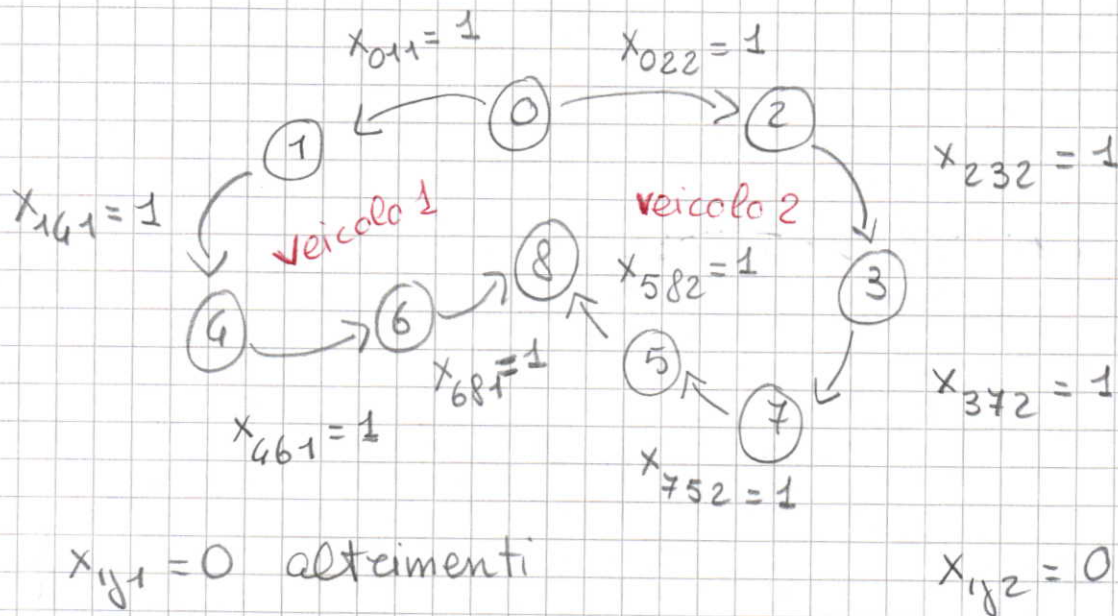 x₀₁₁ = 1 x₀₂₂ = 1
0
1 2
x₂₃₂ = 1
x₁₄₁ = 1 veicolo 1 veicolo 2
8 x₅₈₂ = 1 3
4 6 5
x₆₈₁ = 1 x₃₇₂ = 1
7
x₄₆₁ = 1
x₇₅₂ = 1
xᵢⱼ₁ = 0 altrimenti xᵢⱼ₂ = 0